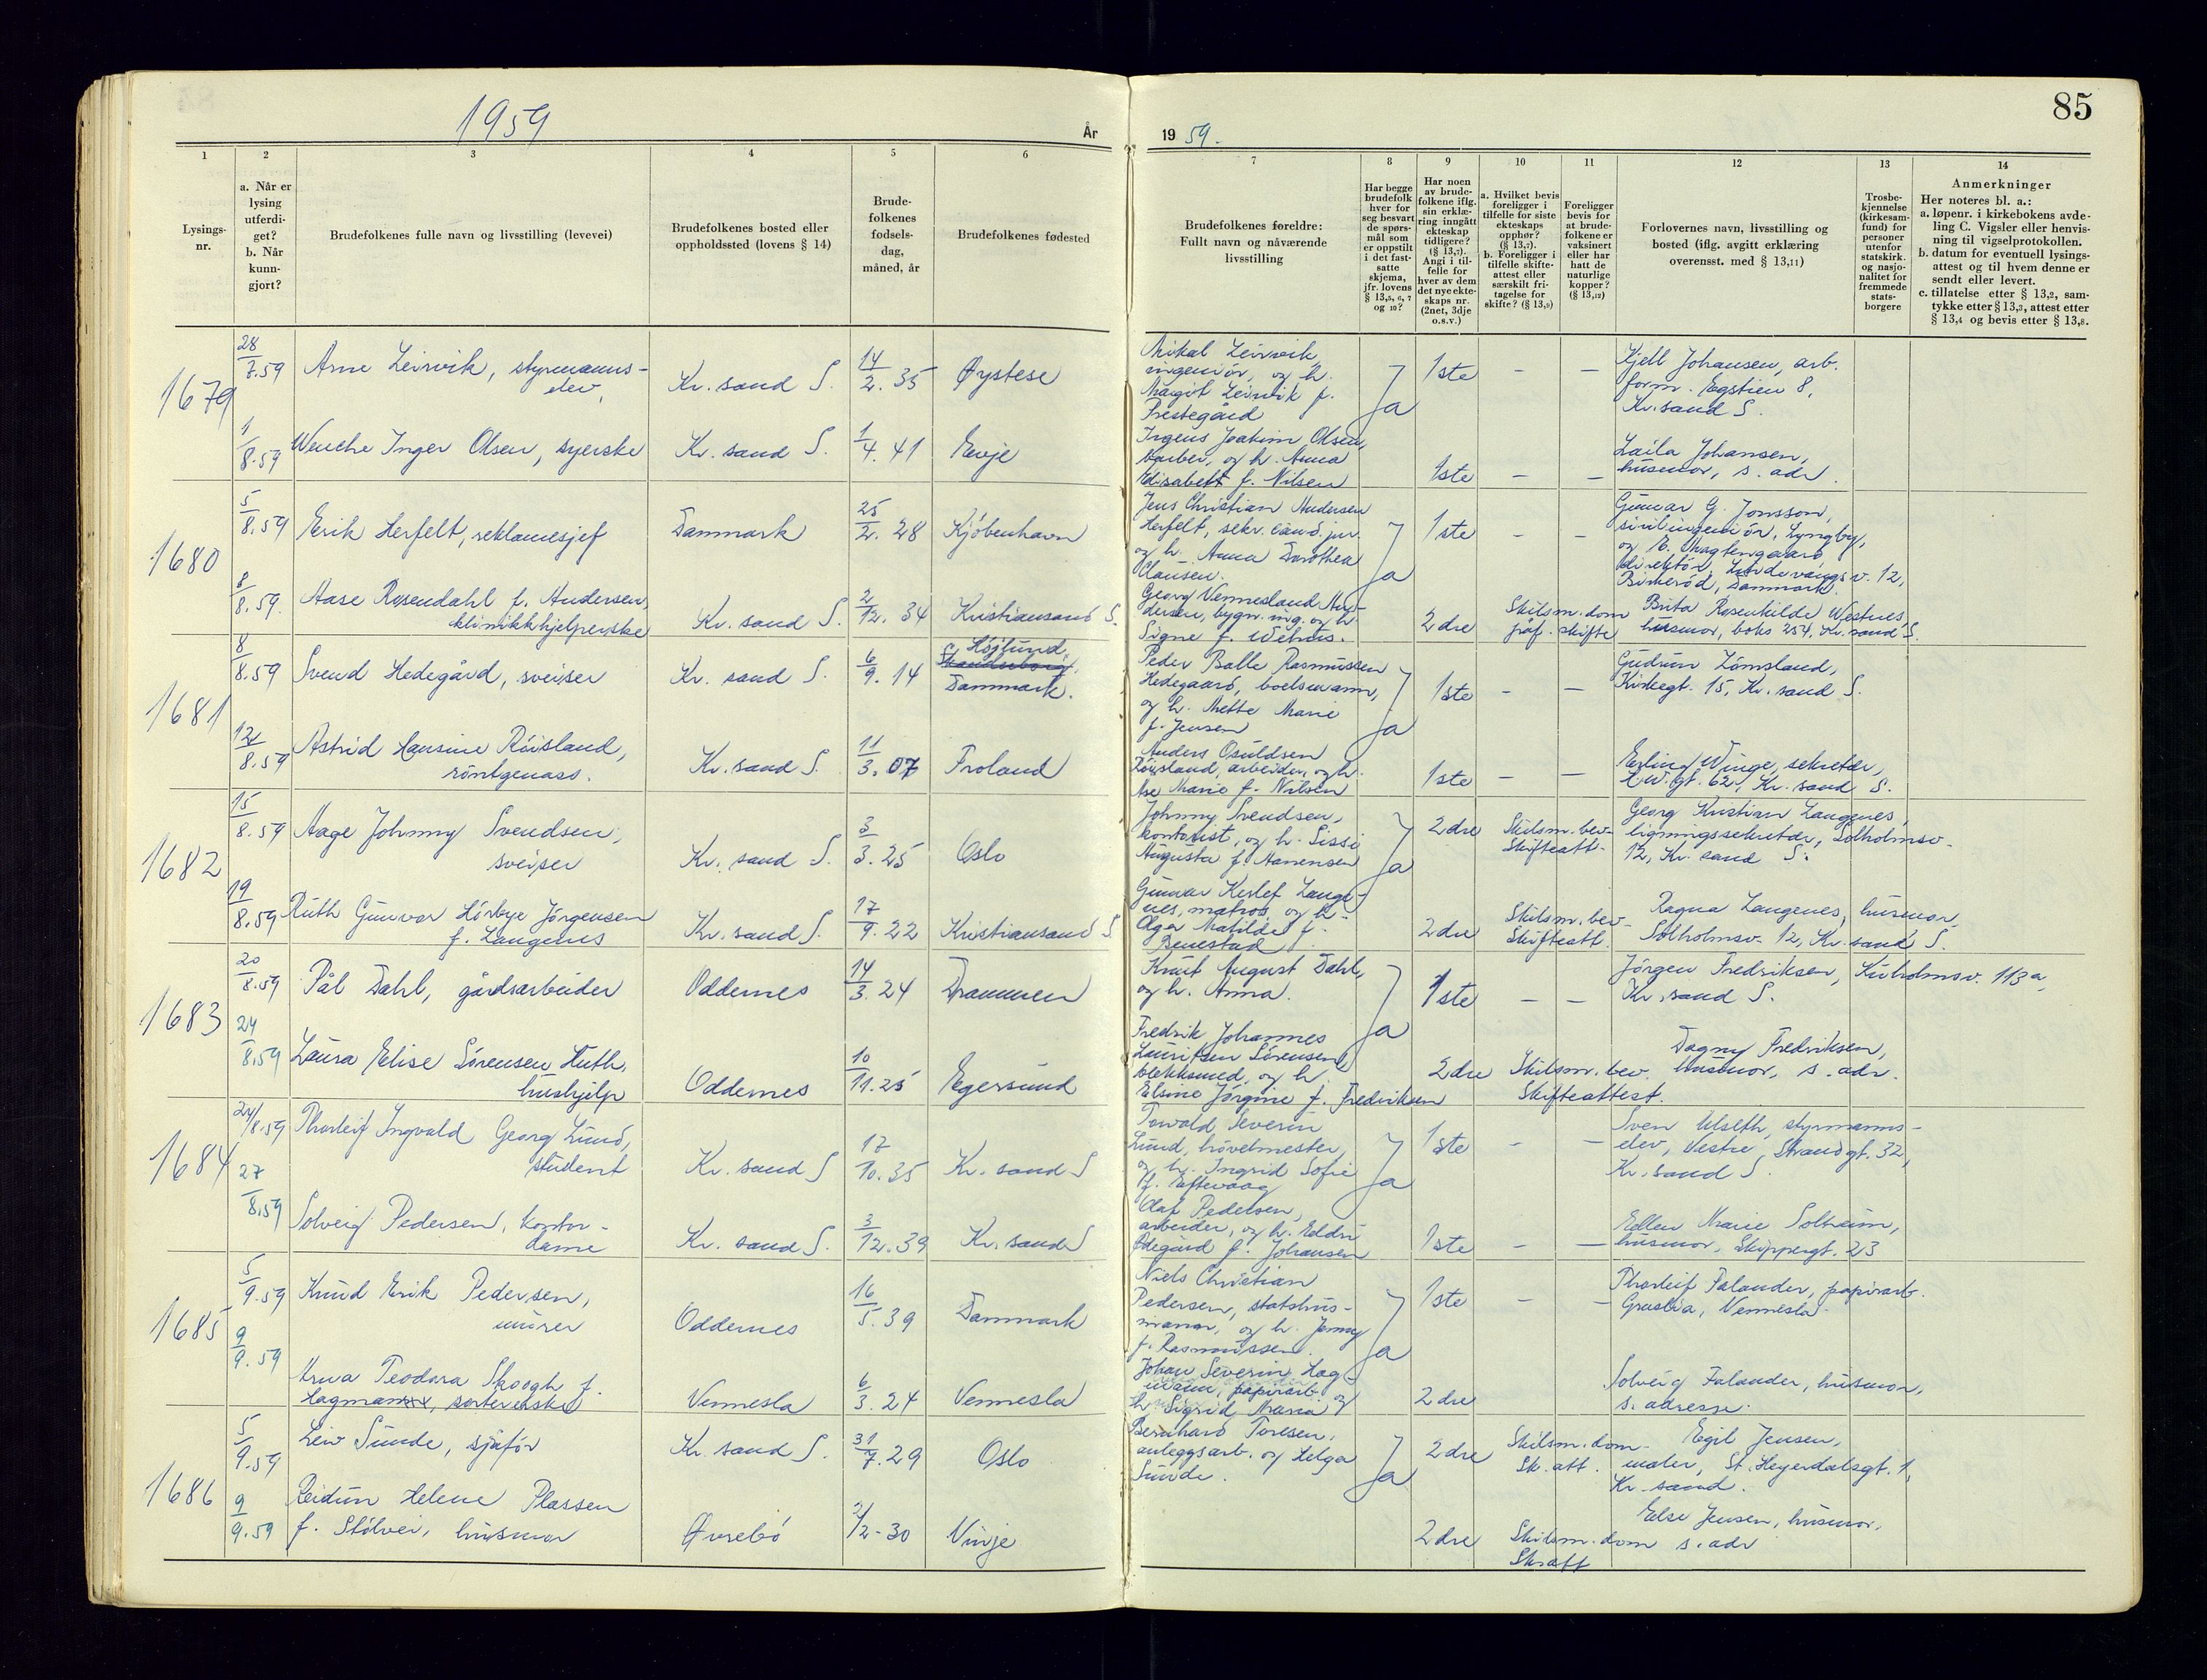 1959
År
1 2 3 4 5 6
Lysings-
nr.
a. Når er
lysing
utferdi-
get?
b. Når
kunn-
gjort?
Brudefolkenes fulle navn og livsstilling (levevei)
Brudefolkenes bosted eller
oppholdssted (lovens § 14)
Brude-
folkenes
fødsels-
dag,
måned, år
Brudefolkenes fødested
1679
28/7.59 Arne Leirvik, styrmanns-
elev, Kr. sand S. 14/2.35 Øystese
1/8.59 Wenche Inger Olsen, syerske Kr. sand S. 1/4.41 Evje
1680
5/8.59 Erik Herfelt, reklamesjef Danmark 25/2.28 Kjøbenhavn
8/8.59. Aase Rosendahl f. Andersen,
klinikkhjelperske Kr. sand S. 2/12.34 Kristiansand S.
1681
8/8.59 Svend Hedegård, sveiser Kr. sand S. 6/9.14 Højlund,
Danmark.
12/8.59 Astrid Hansine Riisland,
röntgenass. Kr. sand S. 11/3.07 Froland
1682
15/8.59 Aage Johnny Svendsen,
sveiser Kr. sand S. 3/3.25 Oslo
19/8.59 Ruth Gunvor Hörbye Jörgensen
f. Langenes Kr. sand S. 17/9.22 Kristiansand S
1683
20/8.59 Pål Dahl, gårdsarbeider Oddernes 14/3.24 Drammen
24/8.59 Laura Elise Sörensen Huth,
hushjelp Oddernes 10/11.25 Egersund
1684
24/8.59 Thorleif Ingvald Georg Lund,
student Kr. sand S 17/10.35 Kr. sand S
27/8.59 Solveig Pedersen, kontor-
dame Kr. sand S. 3/12.39 Kr. sand S
1685
5/9.59 Knud Erik Pedersen,
murer Oddernes 16/5.39 Danmark
9/9.59 Teodora Skoogh f.
sortererske Vennesla 6/3.24 Vennesla
1686
5/9.59 Leiv Sunde, sjåfør Kr. sand S. 31/7.29 Oslo
9/9.59 Reidun Helene Plassen
f. Stölvei, husmor Øvrebö 2/2-30 Vinje
85
19 59.
7 8 9 10 11 12 13 14
Brudefolkenes foreldre:
Fullt navn og nåværende
livsstilling
Har begge
brudefolk
hver for
seg besvart
de spørs-
mål som
er oppstilt
i det fast-
satte
skjema,
jfr. lovens
§ 13,5, 6, 7
og 10?
Har noen
av brude-
folkene iflg.
sin erklæ-
ring inngått
ekteskap
tidligere?
(§ 13,7).
Angi i til-
felle for
hver av dem
det nye ekte-
skaps nr.
(2net, 3dje
o.s.v.)
a. Hvilket bevis
foreligger i
tilfelle for siste
ekteskaps
opphør?
(§ 13,7).
b. Foreligger i
tilfelle skifte-
attest eller
særskilt fri-
tagelse for
skifte? (§ 13,9)
Foreligger
bevis for
at brude-
folkene er
vaksinert
eller har
hatt de
naturlige
kopper?
(§ 13,12)
Forlovernes navn, livsstilling og
bosted (iflg. avgitt erklæring
overensst. med § 13,11)
Trosbe-
kjennelse
(kirkesam-
fund) for
personer
utenfor
statskirk.
og nasjo-
nalitet for
fremmede
stats-
borgere
Anmerkninger
Her noteres bl. a.:
a. løpenr. i kirkebokens avde-
ling C. Vigsler eller henvis-
ning til vigselprotokollen.
b. datum for eventuell lysings-
attest og til hvem denne er
sendt eller levert.
c. tillatelse etter § 13,2, sam-
tykke etter § 13,3, attest etter
§ 13,4 og bevis etter § 13,8.
Mikal Leirvik,
ingeniör, og h.
Margit Leirvik f.
Prestegård
Ja 1ste - -
Kjell Johansen, arb.
form. Egstien 8,
Kr. sand S.
Irgens Joakim Olsen,
barber, og h. Anna
Elisabett f. Nilsen
1ste - -
Laila Johansen,
husmor, s. adr.
Jens Christian Andersen
Herfelt, sekr. cand. jur.
og h. Anna Dorothea
Clausen.
Ja 1ste - -
Gunnar G. Jonsson,
sivilingeniör, Lyngby,
og E. Magtengaard
direktör, Lindevangsv. 12,
Birkeröd, Danmark.
Georg Vennesland An-
dersen, bygn. ing. og h.
Signe f.
2dre Skilsm. dom
skifte
Brita Rosenkilde Westnes,
husmor, boks 254, Kr. sand S.
Peder Balle Rasmussen
Hedegaard, boelsmann,
og h. Mette Marie
f. Jensen
Ja 1ste - -
Gudrun Lömsland,
Kirkegt. 15, Kr. sand S.
Anders Osuldsen
Riisland, arbeider, og h.
Åse Marie f. Nilsen
1ste - -
Erling Winge, sekretær,
gt. 62, Kr. sand S.
Johnny Svendsen,
kontorist, og h. Sissi
Augusta f. Aanensen
Ja 2dre Skilsm. bev.
Skifteatt.
Georg Kristian Langenes,
ligningssekretær, Solholmsv.
12, Kr. sand S.
Gunnar Kerlef Lange-
nes, matros, og h.
Olga Matilde f.
Benestad
2dre Skilsm. bev.
Skifteatt.
Ragna Langenes, husmor,
Solholmsv. 12, Kr. sand S.
Knut August Dahl,
og h. Anna.
Ja 1ste - -
Jörgen Fredriksen, Kuholmsv. 113a,
Kr. sand S.
Fredrik Johannes
Lauritsen Sörensen,
blekksmed, og h.
Elsine Jörgine f. Fredriksen
2dre Skilsm. bev.
Skifteattest.
Dagny Fredriksen,
husmor, s. adr.
Torvald Severin
Lund, hövelmester,
og h. Ingrid Sofie
f. Eftevaag
Ja 1ste - -
Sven Alseth, styrmanns-
elev, Vestre Strandgt. 32,
Kr. sand S
Olaf Pedersen,
arbeider, og h.
Ödegård f. Johansen
1ste - -
Ellen Marie Solheim,
husmor, Skippergt. 23
Niels Christian
Pedersen, statshus-
mann, og h. Jenny
f. Rasmussen.
Ja 1ste - -
Thorleif Falander, papirarb.
Grastia, Vennesla
Johan Severin Hag-
mann, papirarb. og
h. Sigrid Maria
2dre
Solveig Falander, husmor,
s. adresse.
Bernhard Toresen,
anleggsarb. og Helga
Sunde.
Ja 2dre Skilsm. dom
Sk. att.
Egil Jensen,
maler, St. Heyerdalsgt. 1,
Kr. sand.
2dre Skilsm. dom
Sk. att
Else Jensen, husmor,
s. adr